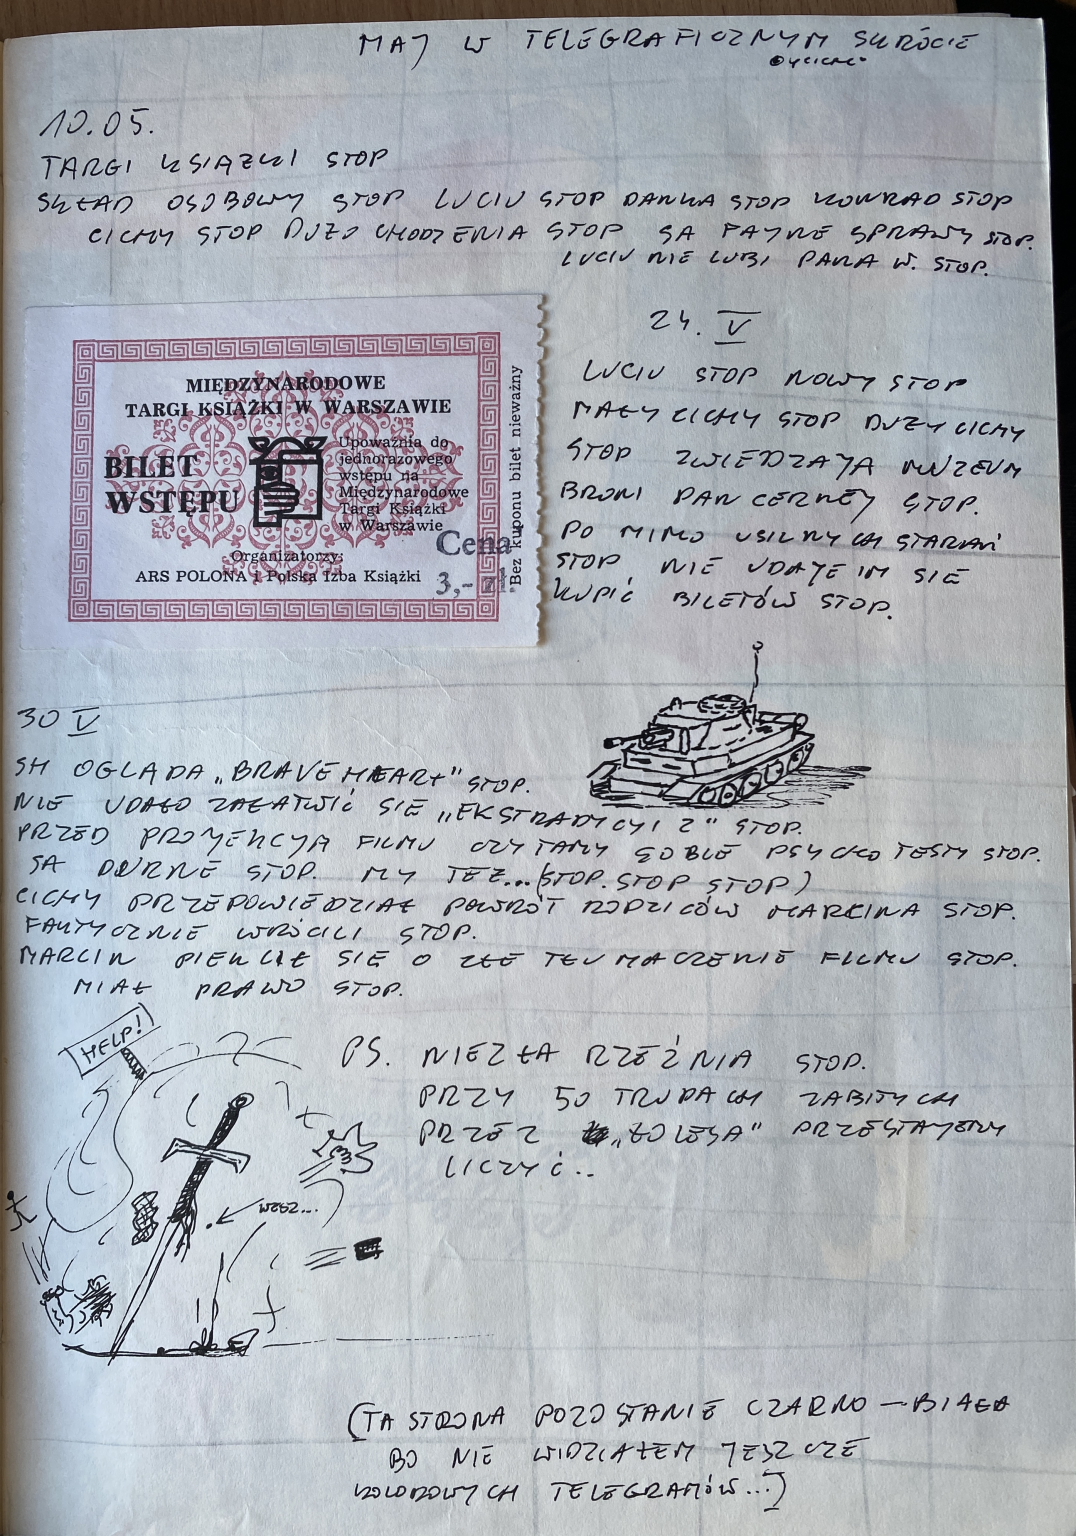 MAJ W TELEGRAFICZNYM SKRÓCIE
10.05.
TARGI KSIĄŻKI STOP
SKŁAD OSOBOWY STOP LUCIU STOP DANKA STOP KONRAD STOP
CICHY STOP DUŻO CHODZENIA STOP SĄ FAJNE SPRAWY STOP.
LUCIU NIE LUBI PANA W. STOP.
MIĘDZYNARODOWE
TARGI KSIĄŻKI W WARSZAWIE
BILET
WSTĘPU
Upoważnia do
jednorazowego
wstępu na
Międzynarodowe
Targi Książki
w Warszawie
Organizatorzy:
ARS POLONA i Polska Izba Książki
Cena
3,- zł.
Bez kuponu bilet nieważny
24. V
LUCIU STOP NOWY STOP
MAŁY CICHY STOP DUŻY CICHY
STOP ZWIEDZAJĄ MUZEUM
BRONI PANCERNEJ STOP.
PO MIMO USILNYCH STARAŃ
STOP NIE UDAJE IM SIĘ
KUPIĆ BILETÓW STOP.
30 V
SH OGLĄDA „BRAVE HEART" STOP.
NIE UDAŁO ZAŁATWIĆ SIĘ „EKSTRADYCJI 2" STOP.
PRZED PROJEKCJĄ FILMU CZYTAMY SOBIE PSYCHOTESTY STOP.
SĄ DURNE STOP. MY TEŻ... (STOP. STOP STOP)
CICHY PRZEPOWIEDZIAŁ POWRÓT RODZICÓW MARCINA STOP.
FAKTYCZNIE WRÓCILI STOP.
MARCIN PIEKLIŁ SIĘ O ZŁE TŁUMACZENIE FILMU STOP.
MIAŁ PRAWO STOP.
HELP!
PS. NIEZŁA RZEŹNIA STOP.
PRZY 50 TRUPACH ZABITYCH
PRZEZ „ŁOLESA" PRZESTAJEMY
LICZYĆ..
(TA STRONA POZOSTANIE CZARNO – BIAŁA
BO NIE WIDZIAŁEM JESZCZE
KOLOROWYCH TELEGRAMÓW...)